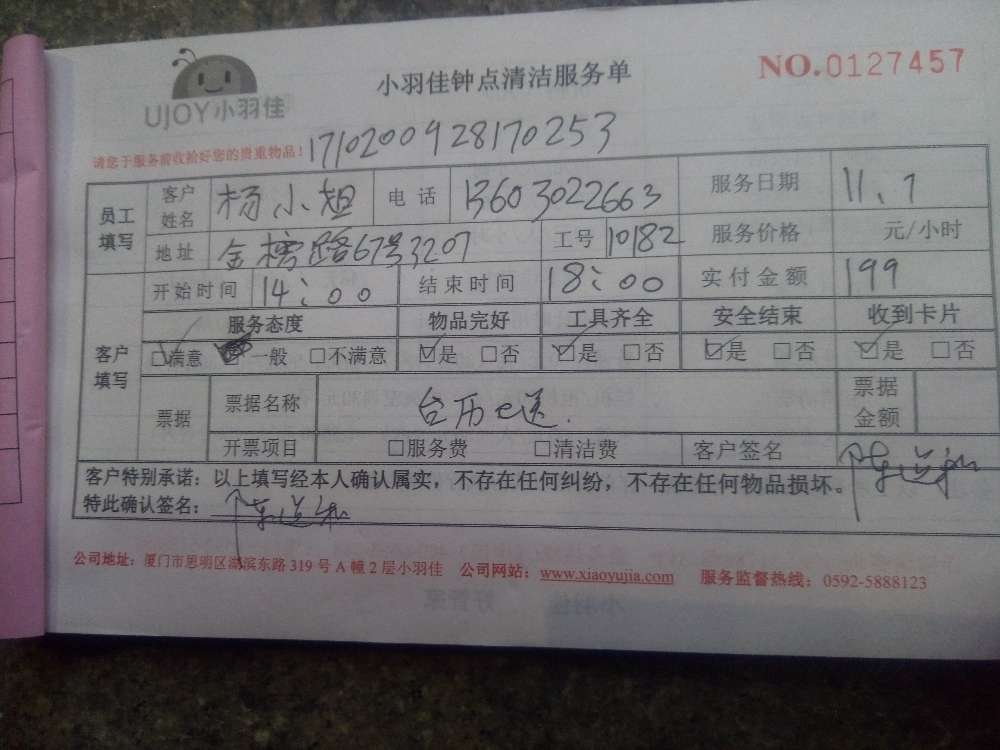 UJOY小羽佳
小羽佳钟点清洁服务单
NO.0127457
请您于服务前收拾好您的贵重物品! 171020092817 0253
员工填写 客户姓名 杨小姐 电话 13603022663 服务日期 11、1
地址 金榜路67号3207 工号 10182 服务价格 元/小时
客户填写 开始时间 14:00 结束时间 18:00 实付金额 199
服务态度 物品完好 工具齐全 安全结束 收到卡片
☑满意 一般 □不满意 ☑是 □否 ☑是 □否 ☑是 □否 ☑是 □否
票据 票据名称 台历已送. 票据金额
开票项目 □服务费 □清洁费 客户签名
客户特别承诺：以上填写经本人确认属实，不存在任何纠纷，不存在任何物品损坏。
特此确认签名：
公司地址：厦门市思明区湖滨东路319号A幢2层小羽佳 公司网站：www.xiaoyujia.com 服务监督热线：0592-5888123